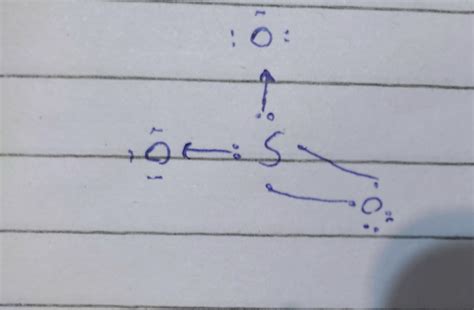 O
O S
O